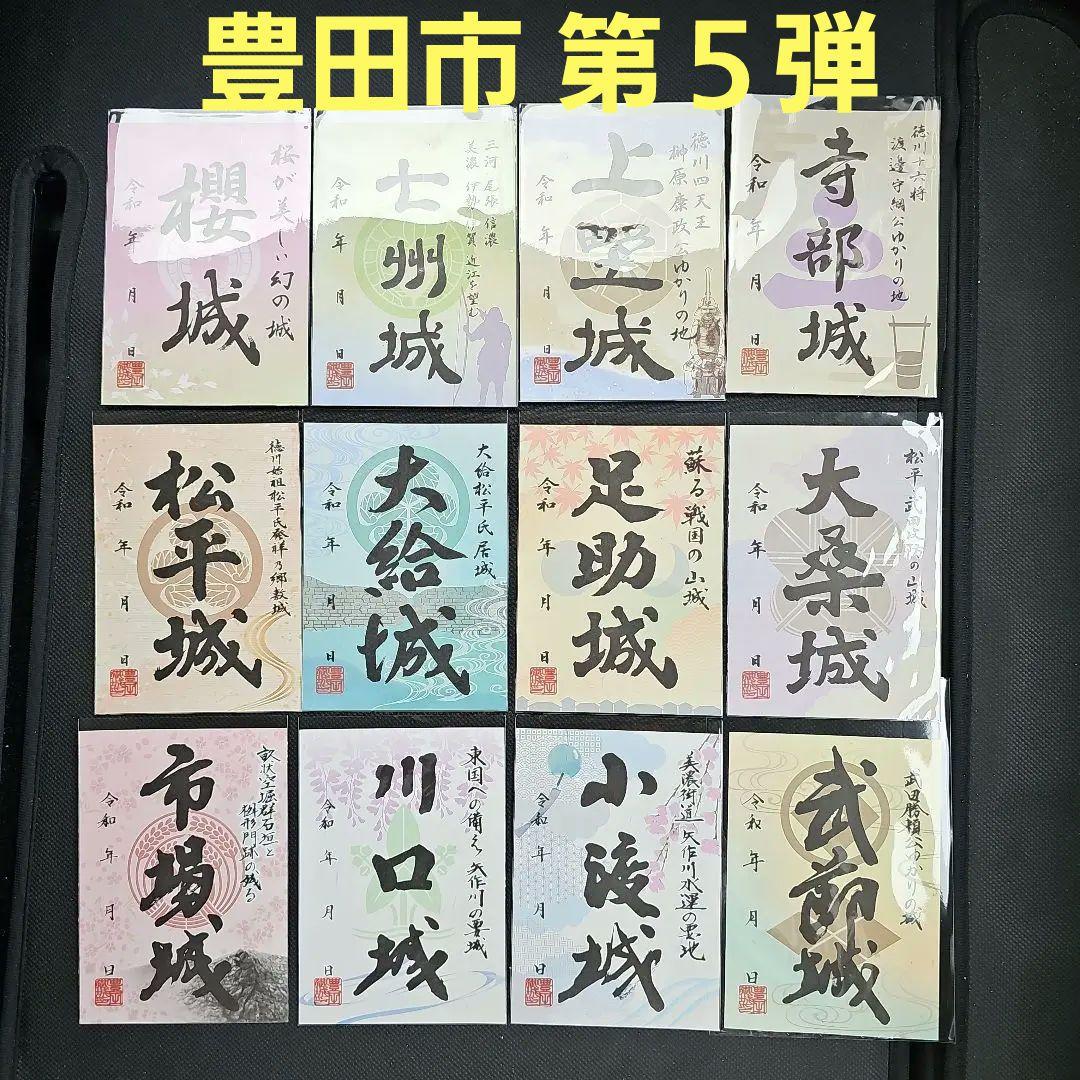 豊田市 第5弾
桜が美しい幻の城
櫻城
令和 年 月 日
三河 尾張 信濃
美濃 伊勢 伊賀 近江を望む
七州城
令和 年 月 日
徳川四天王
榊原康政公ゆかりの地
上野城
令和 年 月 日
徳川十六将
渡邊守綱公ゆかりの地
寺部城
令和 年 月 日
徳川始祖松平氏発祥乃郷敷城
松平城
令和 年 月 日
大給松平氏居城
大給城
令和 年 月 日
蘇る戦国の山城
足助城
令和 年 月 日
松平 武田 の山城
大桑城
令和 年 月 日
畝状空堀群石垣と
桝形門跡の残る
市場城
令和 年 月 日
東国への備え 矢作川の要城
川口城
令和 年 月 日
美濃街道 矢作川水運の要地
小渡城
令和 年 月 日
武田勝頼公ゆかりの城
武節城
令和 年 月 日